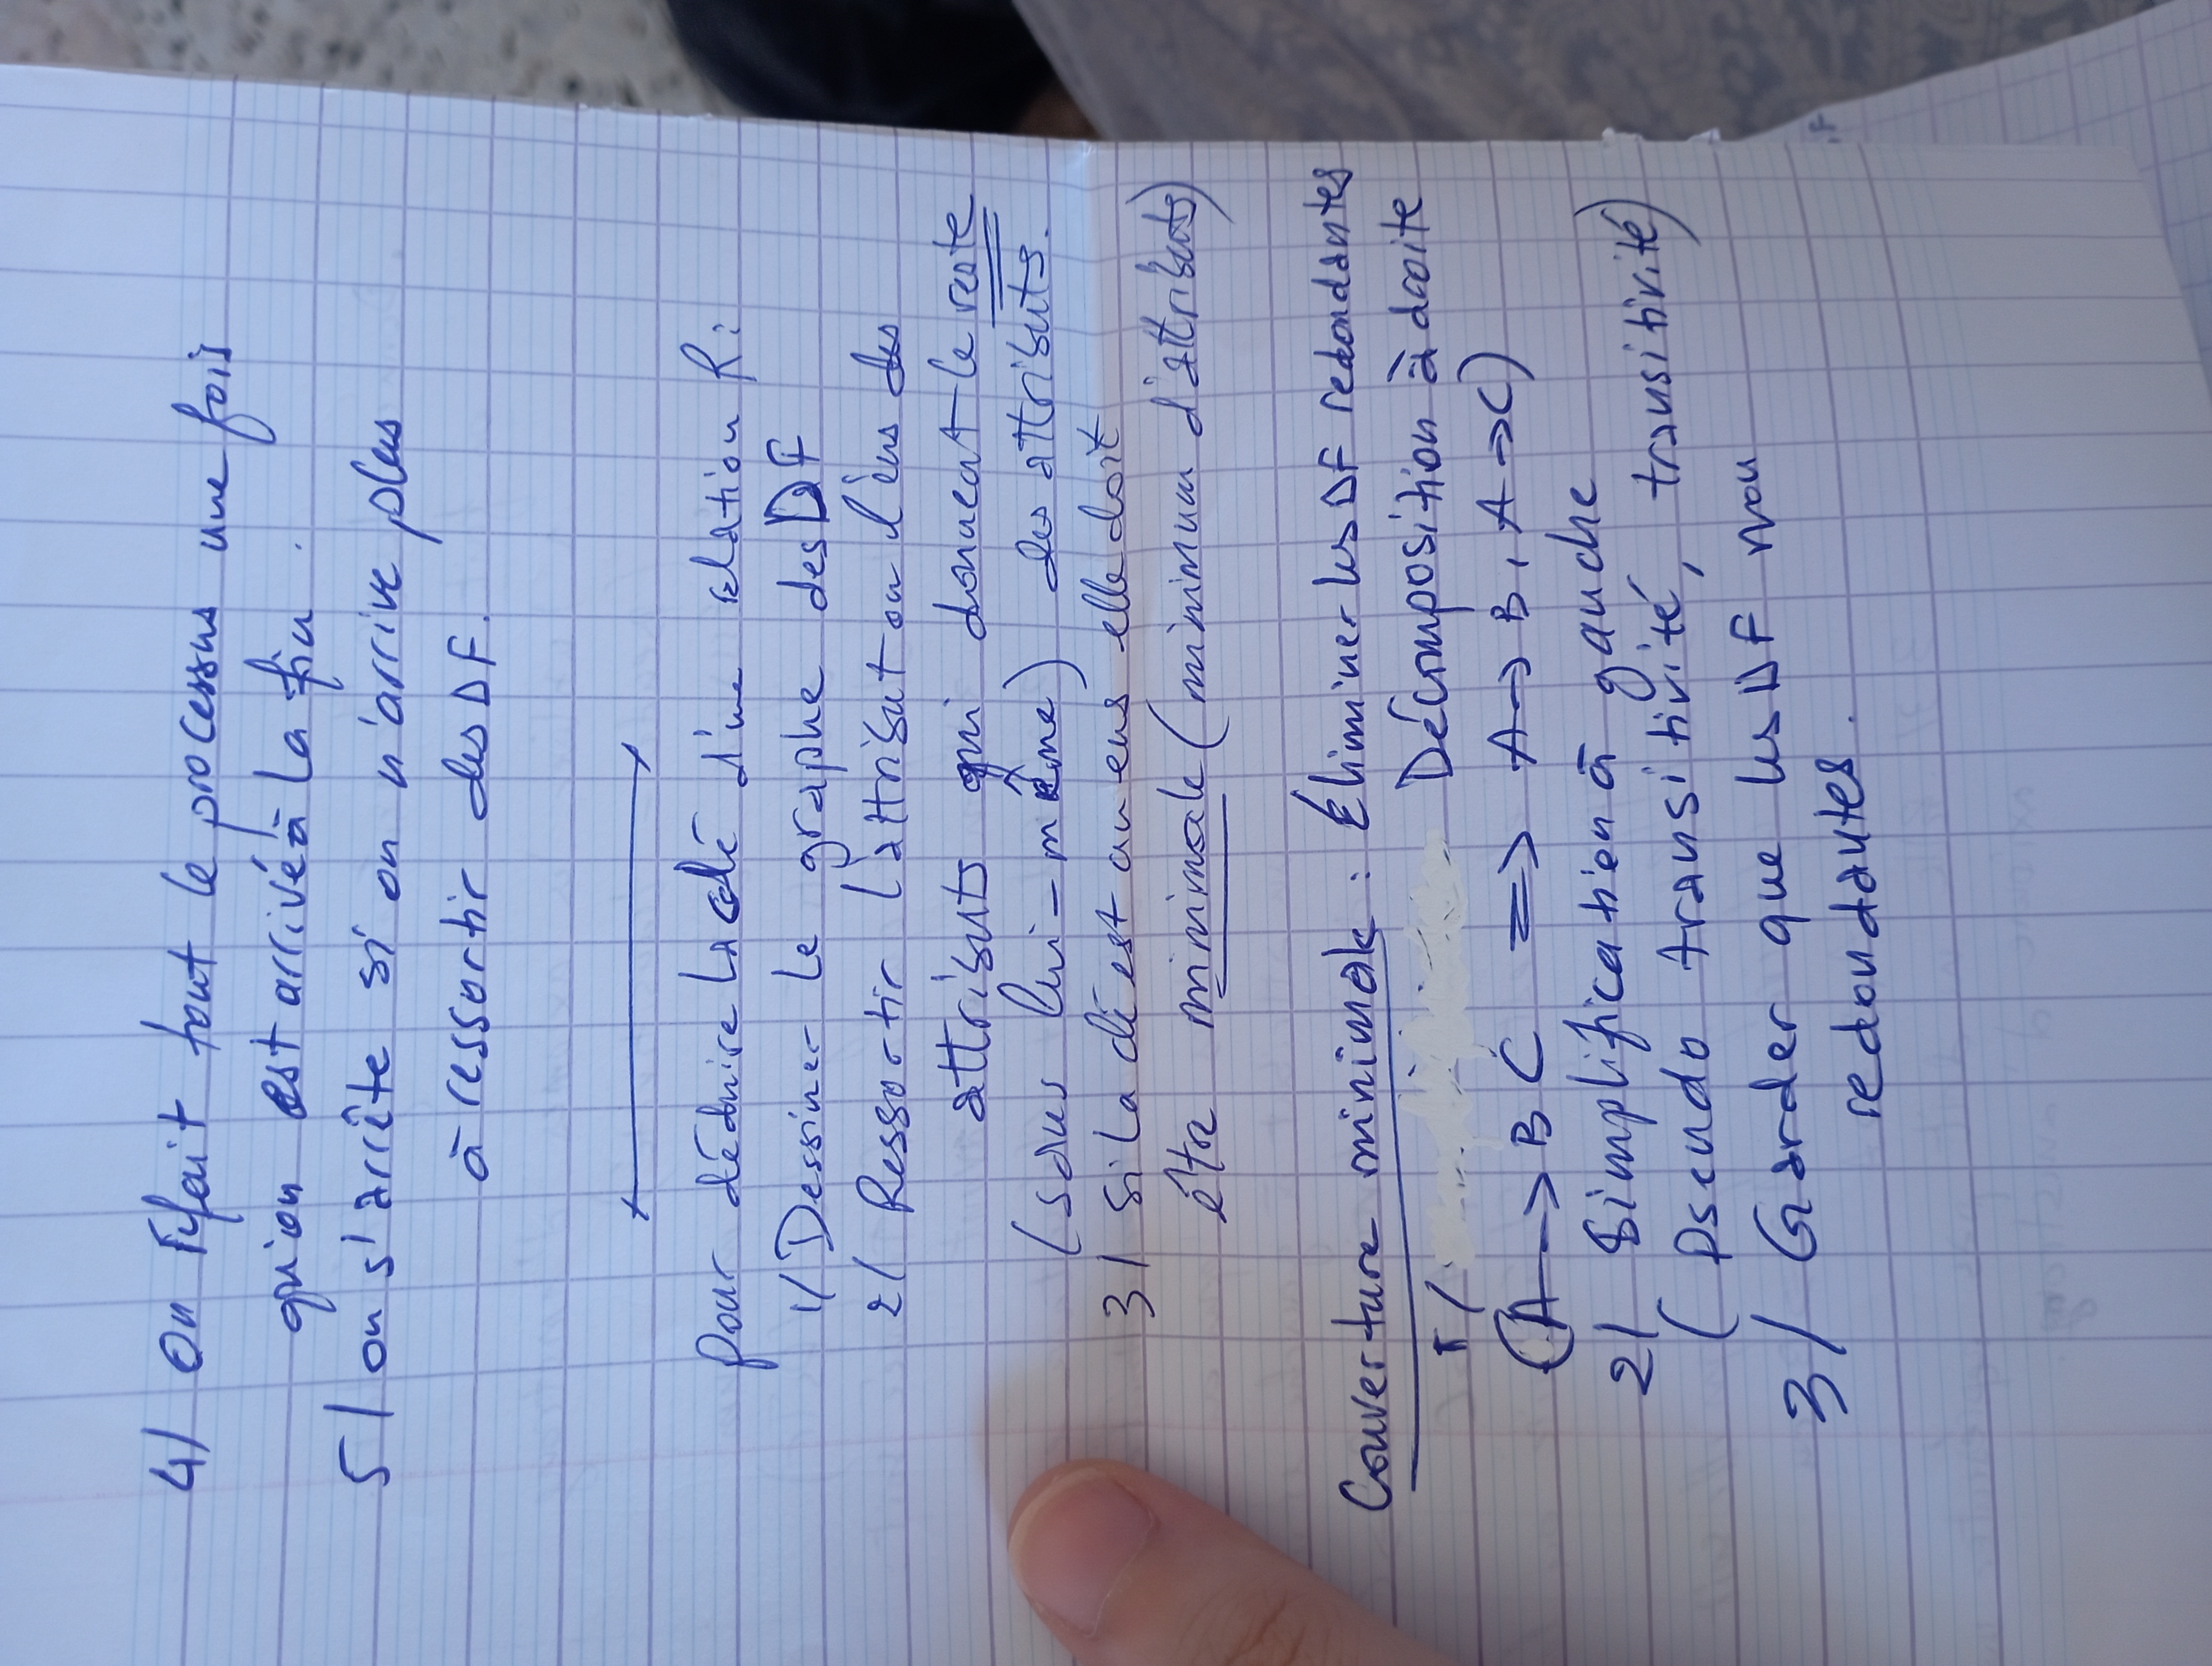 4/ On refait tout le processus une fois
qu'on est arrivé à la fin.
5/ on s'arrête si on n'arrive plus
à ressortir des DF.
pour déduire la clé d'une relation R:
1/ Dessiner le graphe des DF
2/ Ressortir l'attribut ou l'ens des
attributs qui donnent le reste
(sans lui-même) des attributs.
3/ Si la clé est un ens elle doit
être minimale (minimum d'attributs)
Couverture minimale : Éliminer les DF redondantes
1/ Décomposition à droite
(A → B C ⇒ A → B, A → C)
2/ Simplification à gauche
(Pseudo transitivité, transitivité)
3/ Garder que les DF non
redondantes.